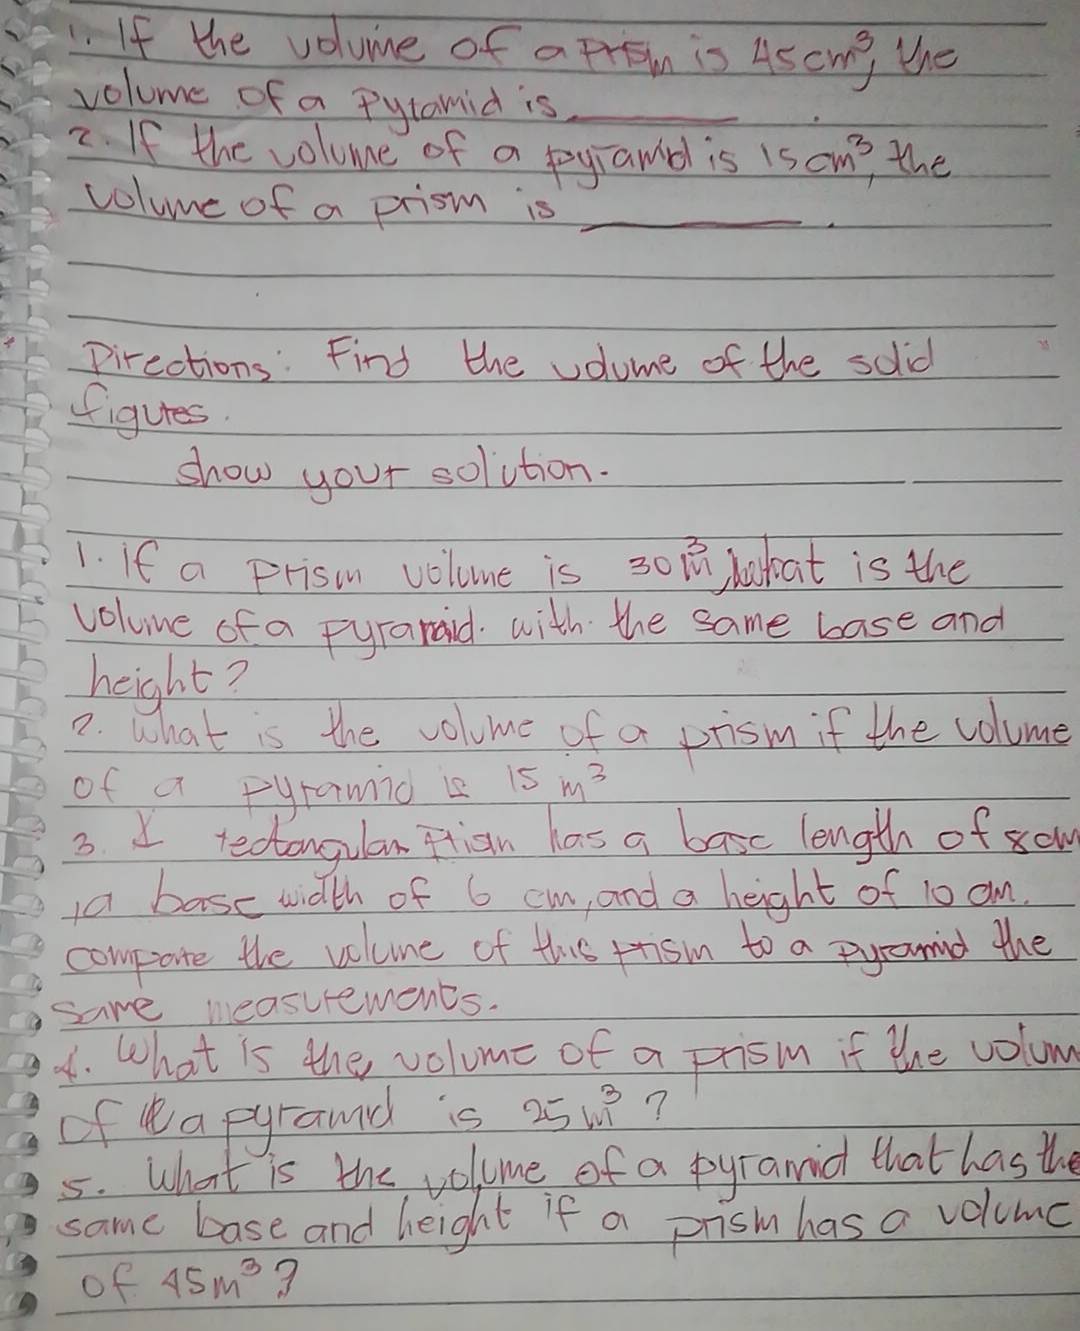 1. If the volume of a prism is 45cm³, the
volume of a pyramid is ________.
2. If the volume of a pyramid is 15cm³, the
volume of a prism is ________.
Directions: Find the volume of the solid
figures.
show your solution.
1. if a prism volume is 30m³, what is the
volume of a pyramid. with the same base and
height?
2. What is the volume of a prism if the volume
of a pyramid is 15 m³
3. A rectangular prism has a base length of 8cm
, a base width of 6 cm, and a height of 10 cm.
compare the volume of this prism to a pyramid the
same measurements.
4. What is the volume of a prism if the volum
of a pyramid is 25m³?
5. What is the volume of a pyramid that has the
same base and height if a prism has a volume
of 45m³?